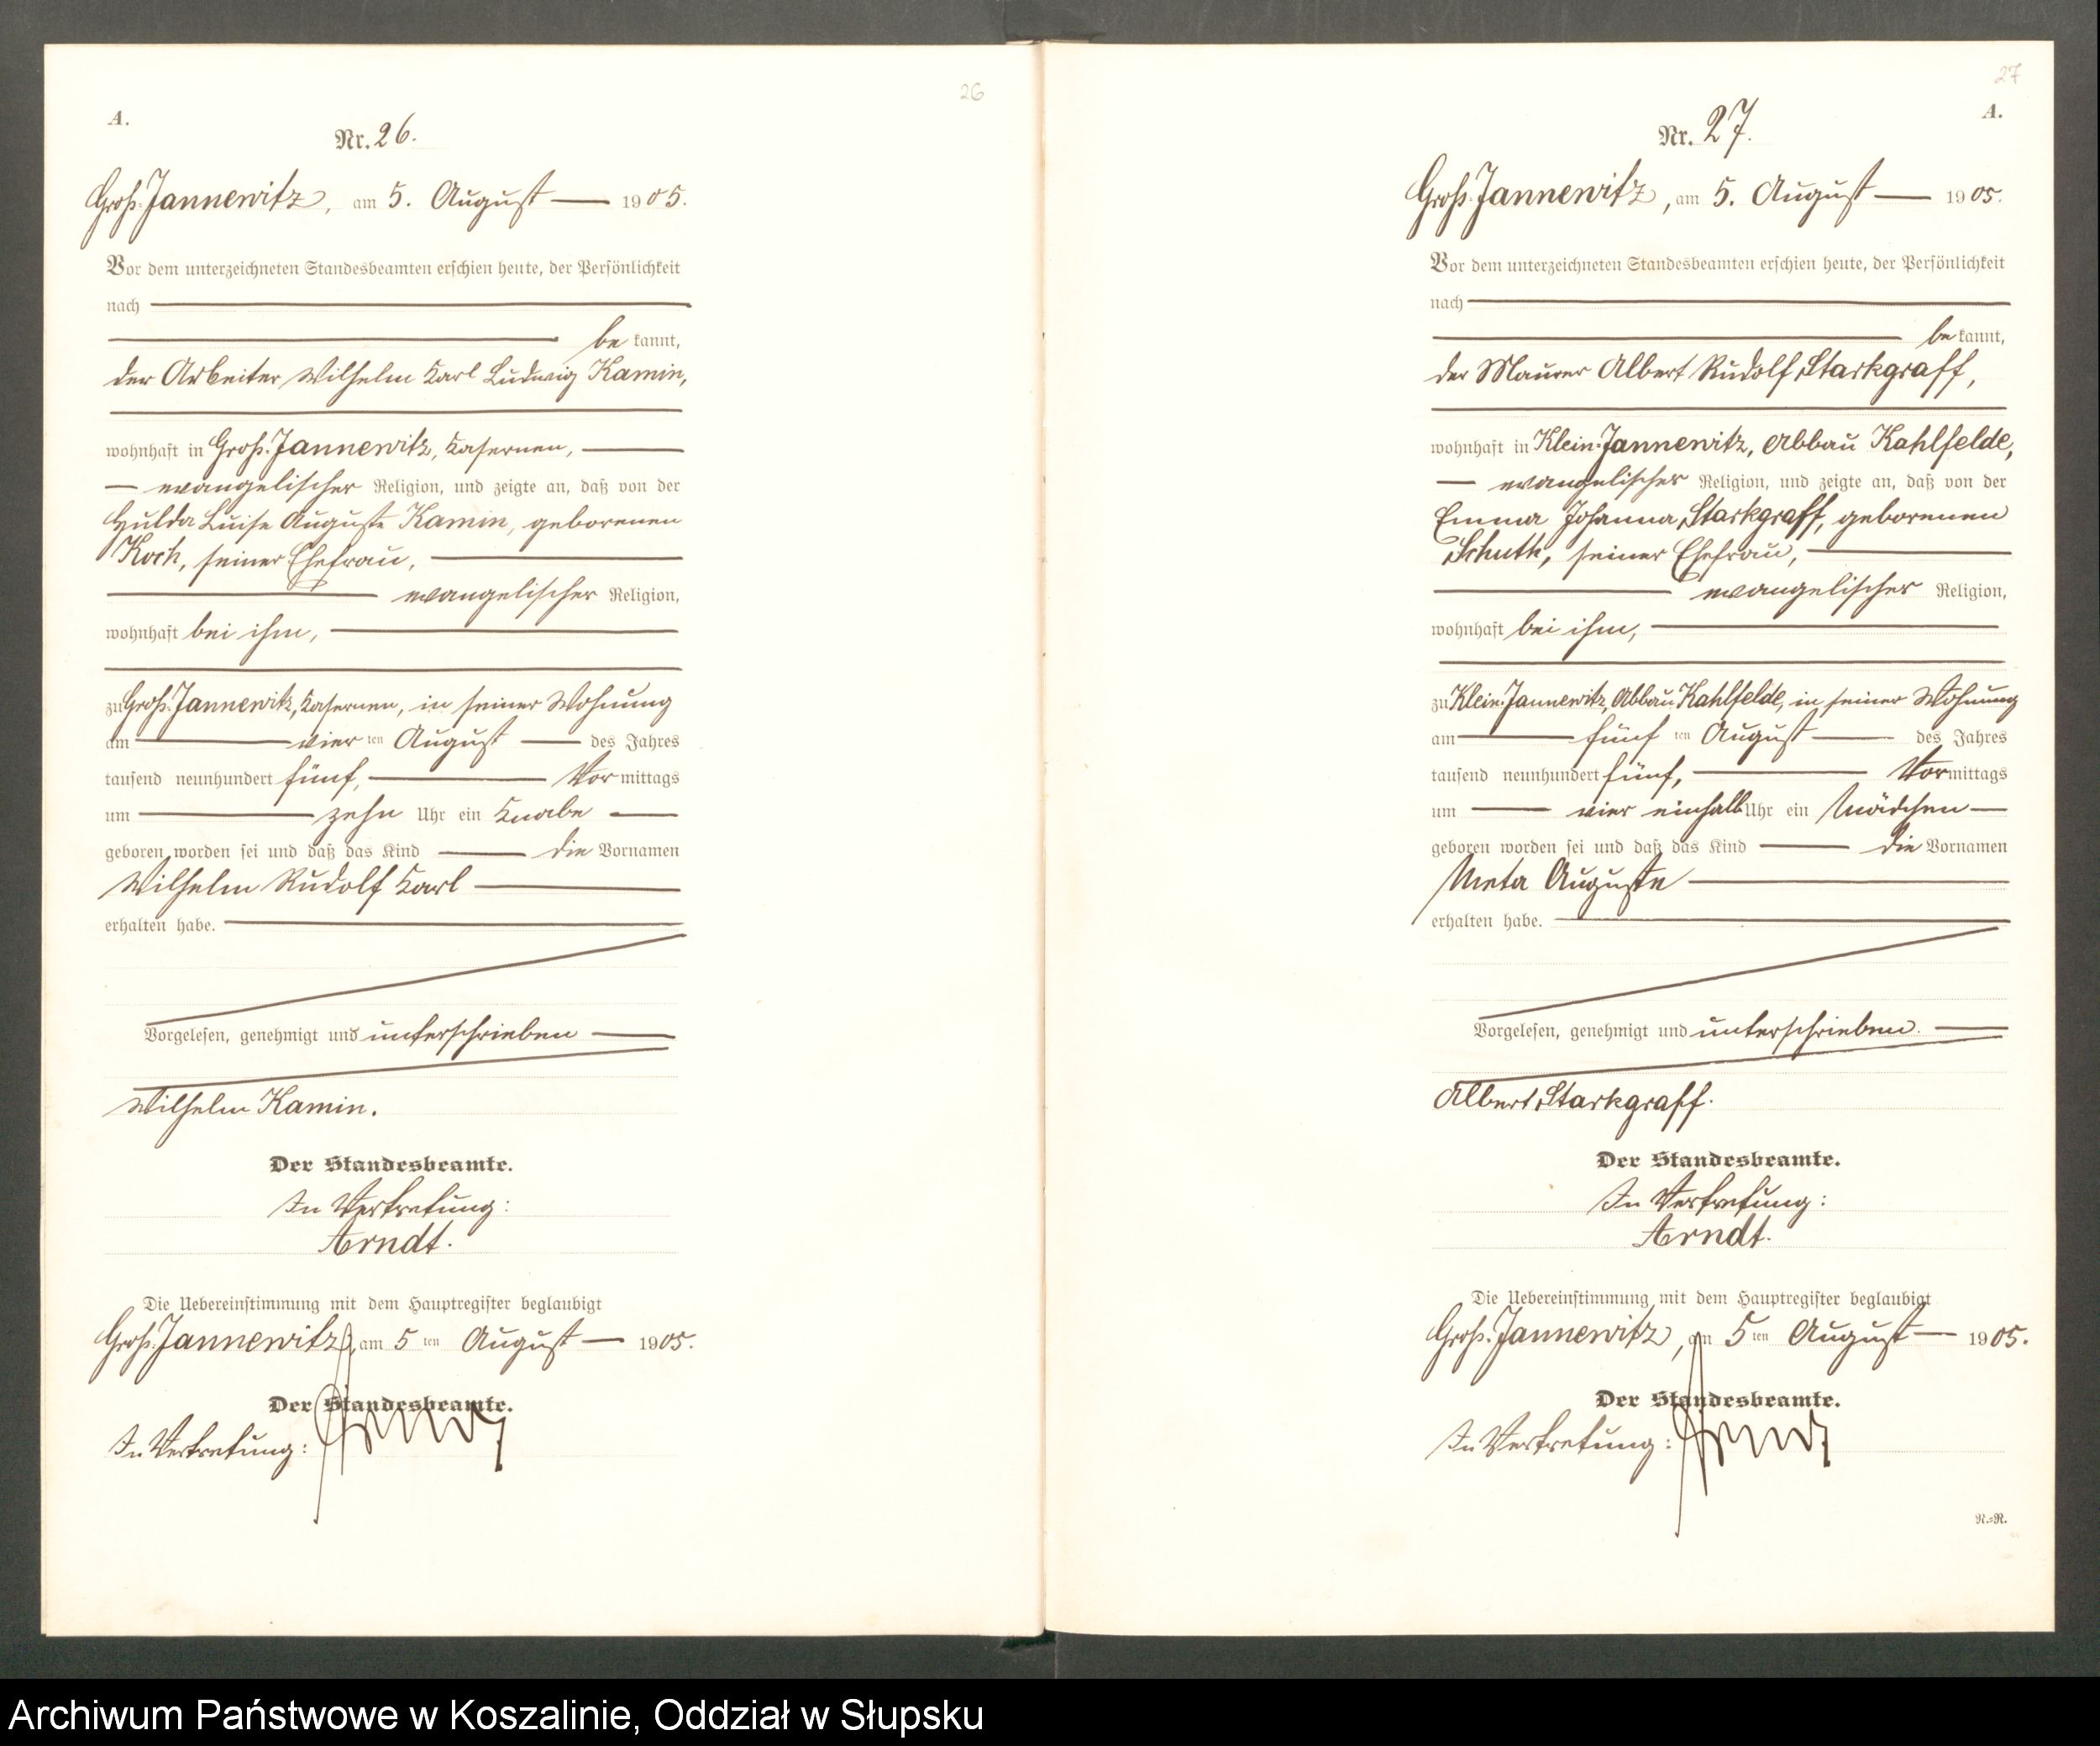 26
A.
Nr. 26.
Groß-Jannewitz, am 5. August 1905.
Vor dem unterzeichneten Standesbeamten erschien heute, der Persönlichkeit
nach
bekannt,
der Arbeiter Wilhelm Karl Ludwig Kamin,
wohnhaft in Groß-Jannewitz, Kasernen,
evangelischer Religion, und zeigte an, daß von der
Hulda Luise Auguste Kamin, geborenen
Koch, seiner Ehefrau,
evangelischer Religion,
wohnhaft bei ihm,
zu Groß-Jannewitz, Kasernen, in seiner Wohnung
am vierten August des Jahres
tausend neunhundert fünf, Vormittags
um zehn Uhr ein Knabe
geboren worden sei und daß das Kind die Vornamen
Wilhelm Rudolf Karl
erhalten habe.
Vorgelesen, genehmigt und unterschrieben
Wilhelm Kamin.
Der Standesbeamte.
In Vertretung:
Arndt.
Die Uebereinstimmung mit dem Hauptregister beglaubigt
Groß-Jannewitz, am 5ten August 1905.
Der Standesbeamte.
In Vertretung: Arndt
27
A.
Nr. 27.
Groß-Jannewitz, am 5. August 1905.
Vor dem unterzeichneten Standesbeamten erschien heute, der Persönlichkeit
nach
bekannt,
der Maurer Albert Rudolf Starkgraff,
wohnhaft in Klein-Jannewitz, Abbau Kahlfelde,
evangelischer Religion, und zeigte an, daß von der
Emma Johanna Starkgraff, geborenen
Schuth, seiner Ehefrau,
evangelischer Religion,
wohnhaft bei ihm,
zu Klein-Jannewitz, Abbau Kahlfelde, in seiner Wohnung
am fünften August des Jahres
tausend neunhundert fünf, Vormittags
um vier einhalb Uhr ein Mädchen
geboren worden sei und daß das Kind die Vornamen
Meta Auguste
erhalten habe.
Vorgelesen, genehmigt und unterschrieben.
Albert Starkgraff.
Der Standesbeamte.
In Vertretung:
Arndt.
Die Uebereinstimmung mit dem Hauptregister beglaubigt
Groß-Jannewitz, am 5ten August 1905.
Der Standesbeamte.
In Vertretung: Arndt
N.=R.
Archiwum Państwowe w Koszalinie, Oddział w Słupsku